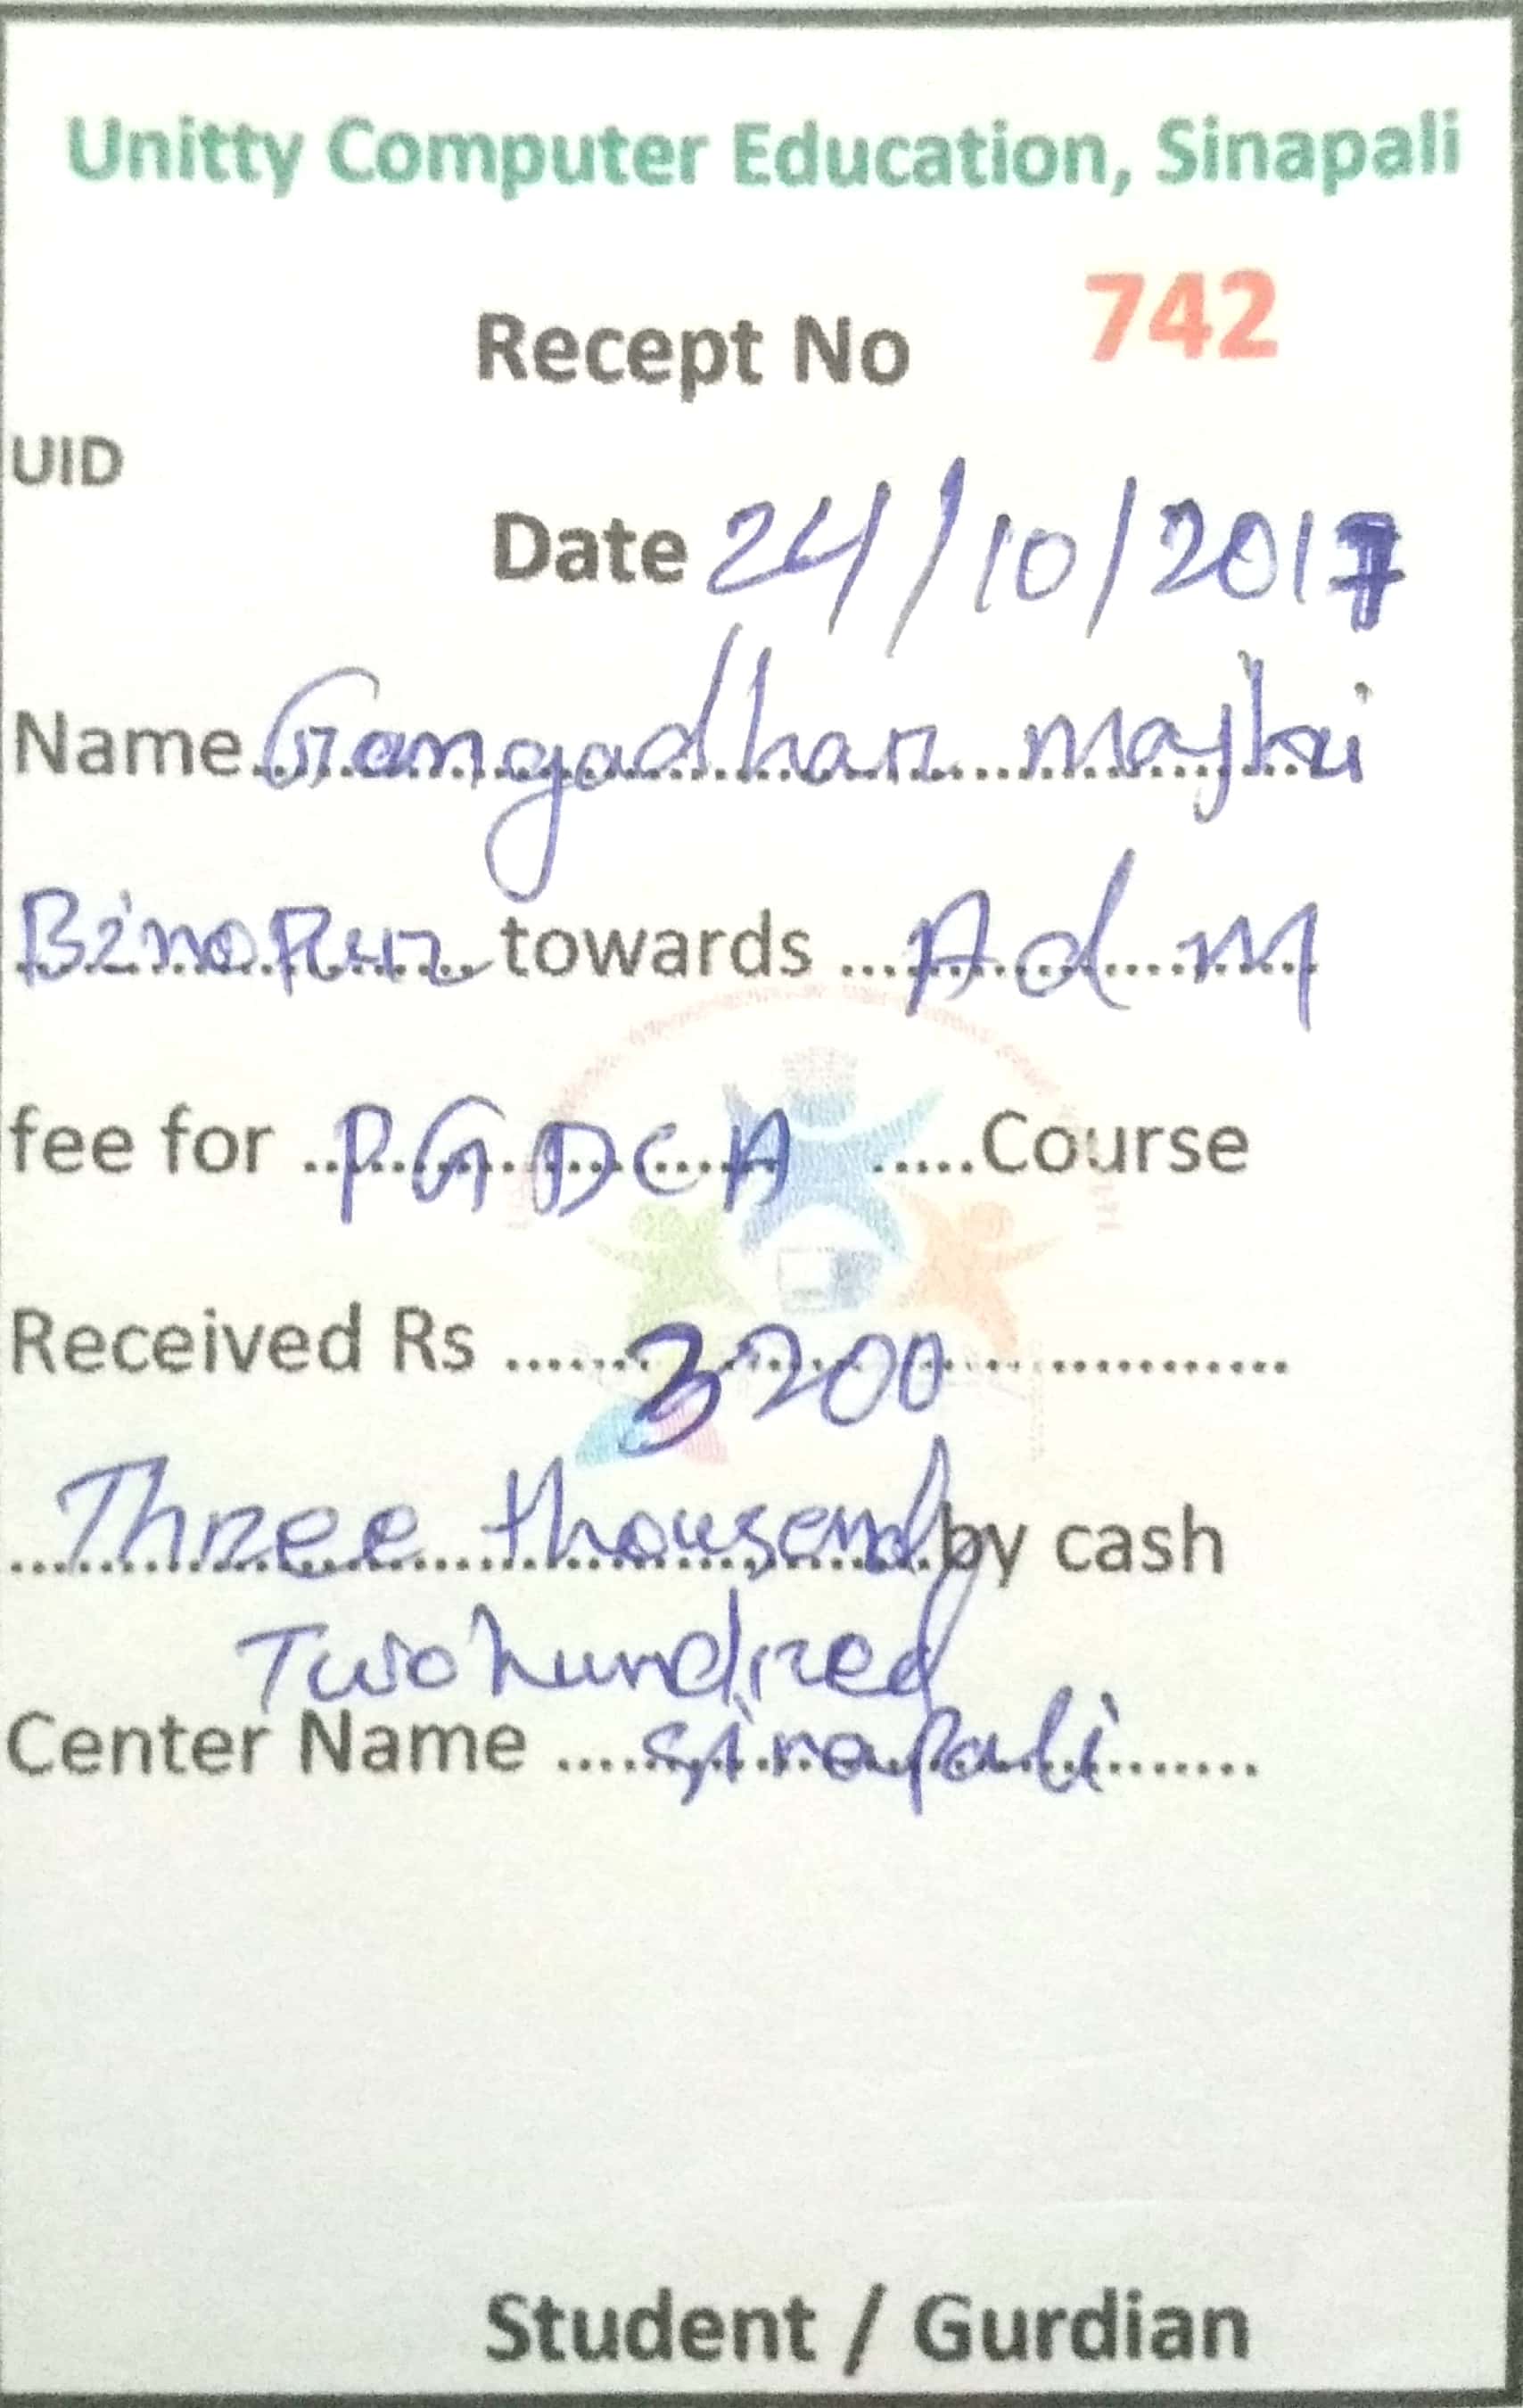 Unitty Computer Education, Sinapali
Recept No 742
UID
Date 24/10/2017
Name Gangadhar majhi
Binapur towards Adm
fee for PGDCA Course
Received Rs 3200
Three thousand by cash
Two hundred
Center Name Sinapali
Student / Gurdian